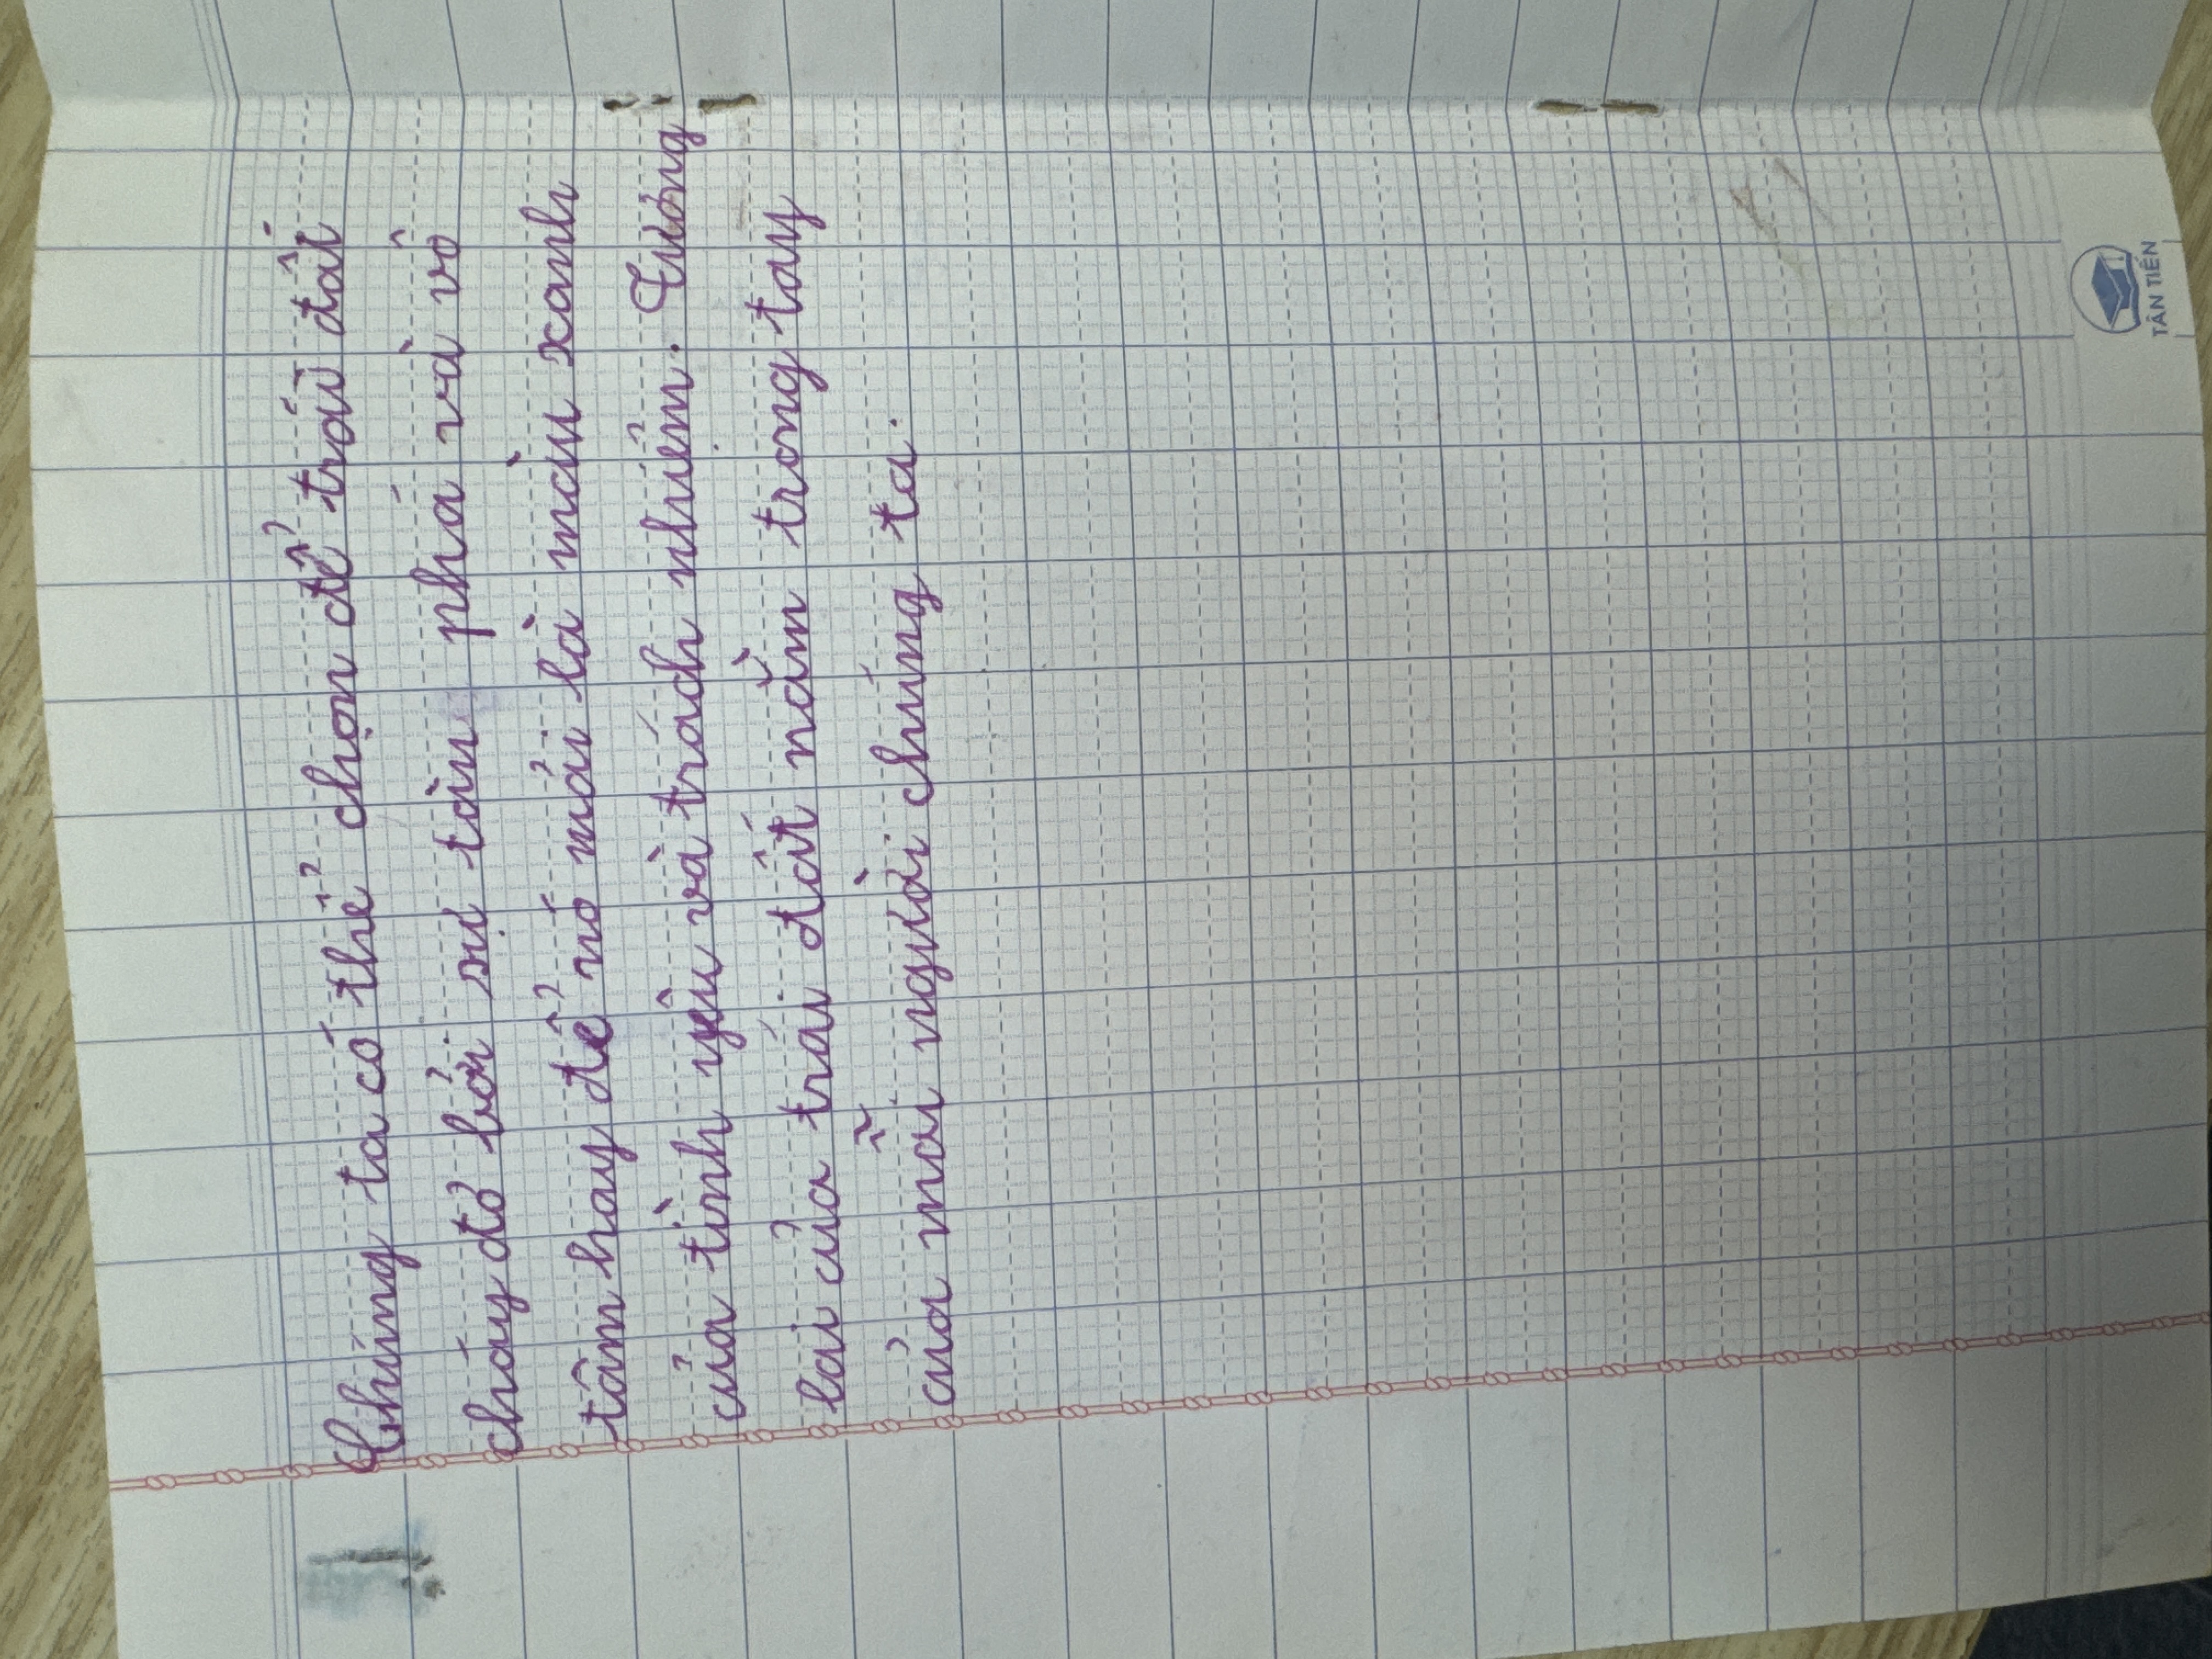 Chúng ta có thể chọn để trái đất
cháy đỏ bởi sự tàn phá và vô
tâm hay để nó mải là màu xanh
của tình yêu và trách nhiệm. Tương
lai của trái đất nằm trong tay
của mỗi người chúng ta.
TÂN TIẾN